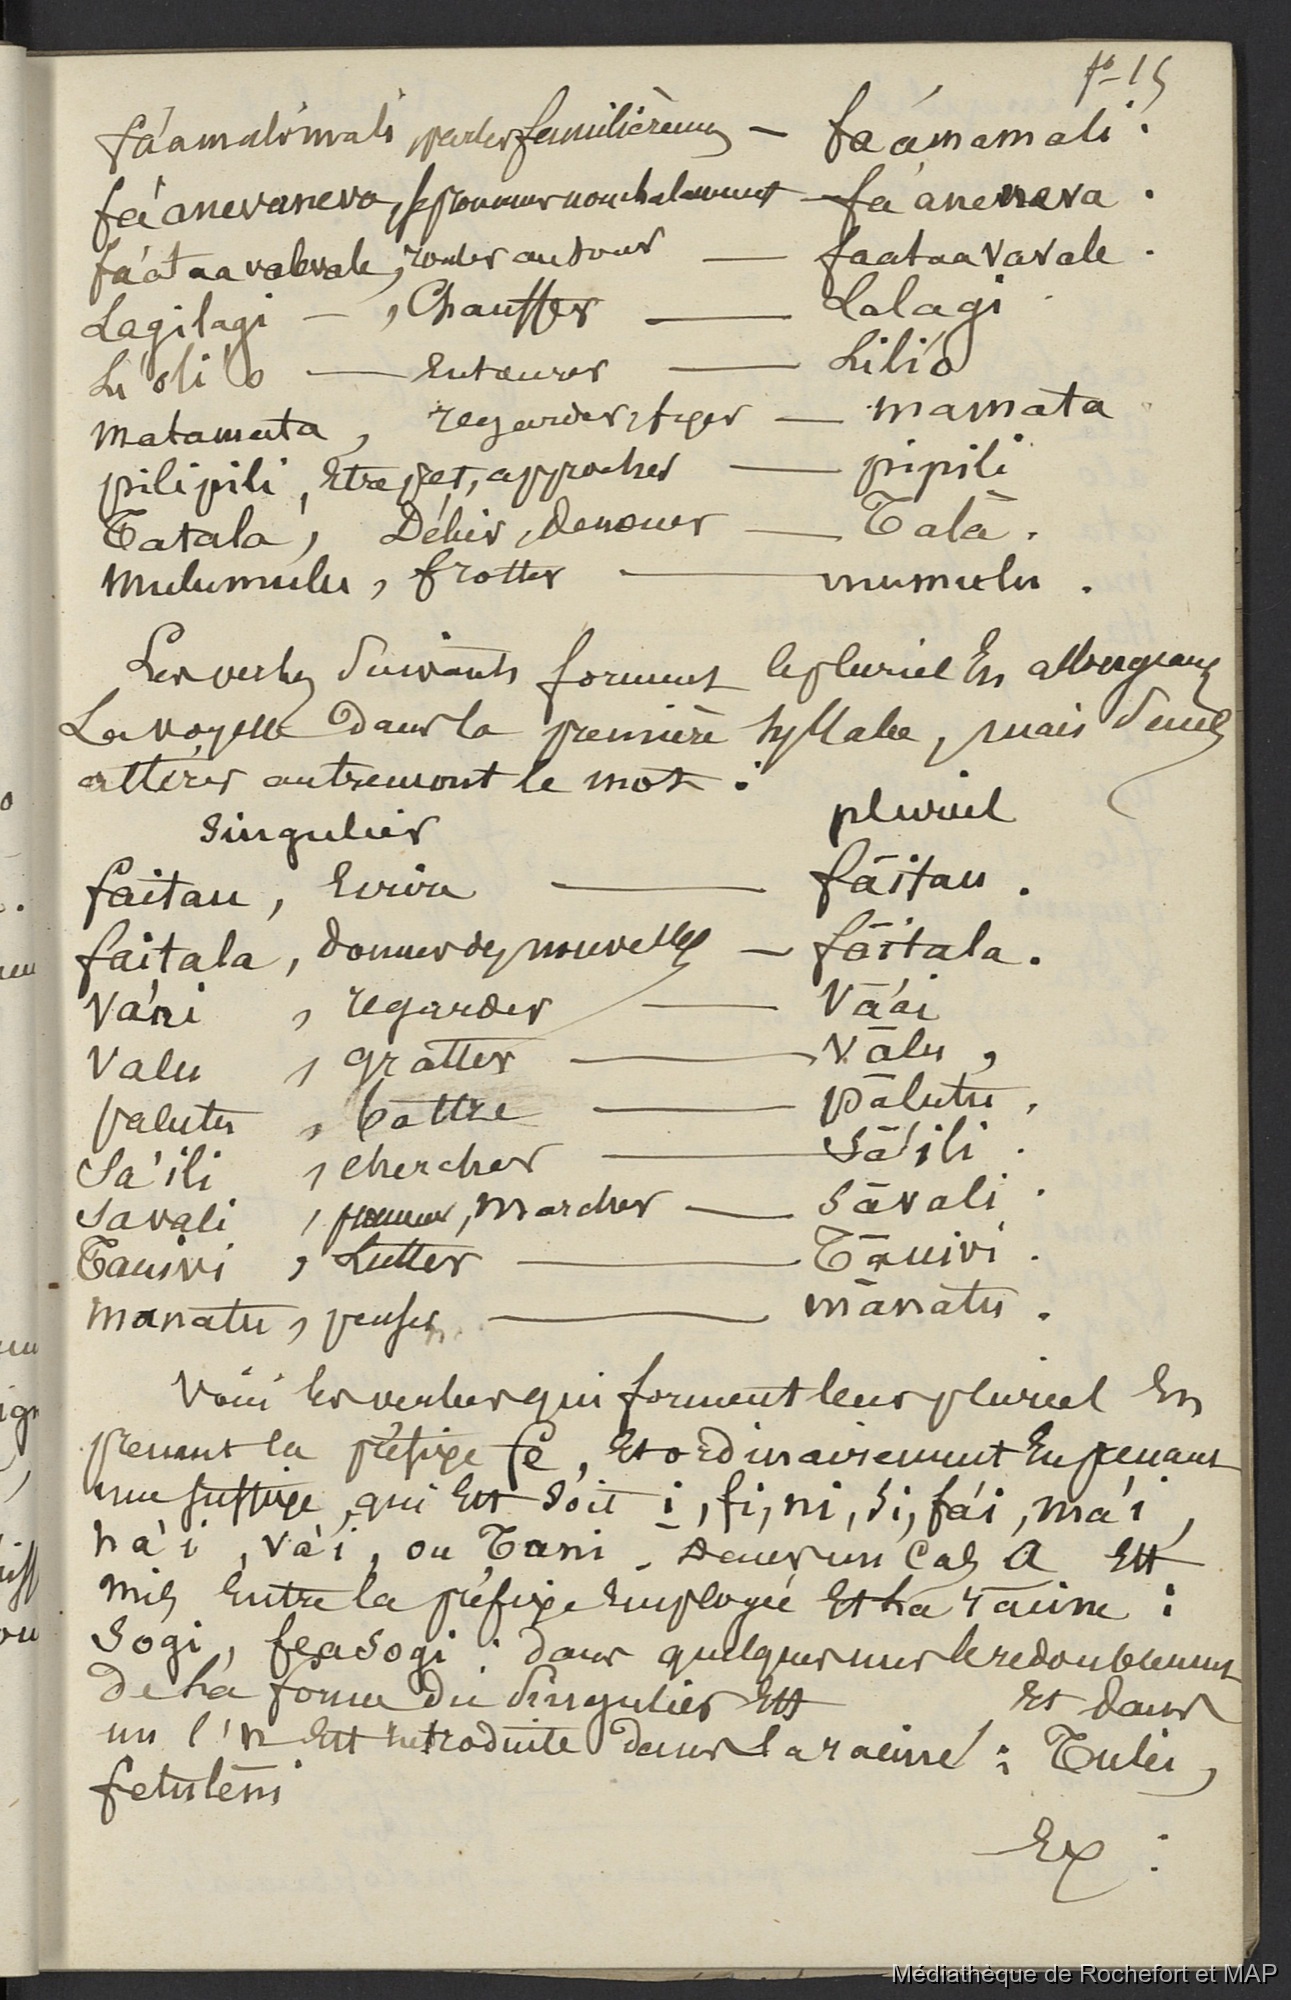 fo-15
fa'amalimali, parler familièremt — fa'amamali.
fa'anevaneva, se promener nonchalamment — fa'aneneva.
fa'ataavalevale, rouler autour — faataavavale.
Lagilagi —, Chauffer — Lalagi
Li'oli'o — Entourer — Lili'o
matamata, regarder, fixer — mamata
pilipili, Etre pret, approcher — pipili
Tatala, Délier, denouer — Tala.
mulumulu, frotter — mumulu.
Les verbes suivants forment le pluriel En allongeant
La voyelle dans la première syllabe, mais sans
altérer autrement le mot :
Singulier pluriel
faitau, — fāitau.
faitala, donner des nouvelles — fāitala.
Va'ai, regarder — Vā'ai
Valu, gratter — Vālu,
palutu, battre — pālutu,
Sa'ili, chercher — Sā'ili.
Savali, marcher — Sāvali.
Tauivi, Lutter — Tāuivi.
manatu, penser — mānatu.
Voici les verbes qui forment leur pluriel En
prenant la préfixe fe, Et ordinairement En prenant
une suffixe, qui Est soit i, fi, ni, si, fa'i, ma'i,
na'i, va'i, ou Tani. Dans un Cas A Est
mis Entre la préfixe Employée Et La racine :
Sogi, feasogi : dans quelques uns le redoublement
De La forme du Singulier Est Et dans
un l'n Est introduite dans la racine : Tulei,
fetuleni
Ex :
Médiathèque de Rochefort et MAP